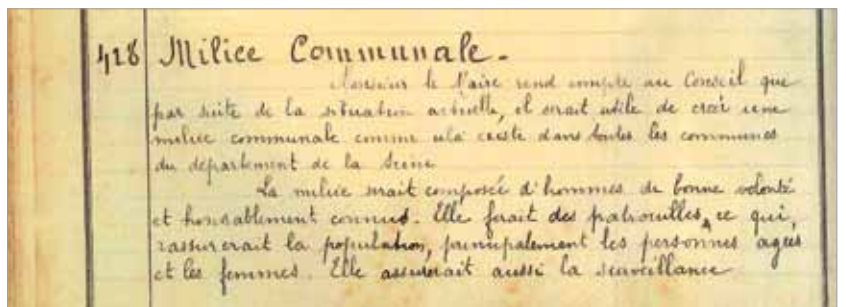 428 Milice Communale.
Monsieur le Maire rend compte au Conseil que
par suite de la situation actuelle, il serait utile de créer une
milice communale comme cela existe dans toutes les communes
du département de la Seine
La milice serait composée d'hommes de bonne volonté
et honorablement connus. Elle ferait des patrouilles, ce qui,
rassurerait la population, principalement les personnes agées
et les femmes. Elle assurerait aussi la surveillance